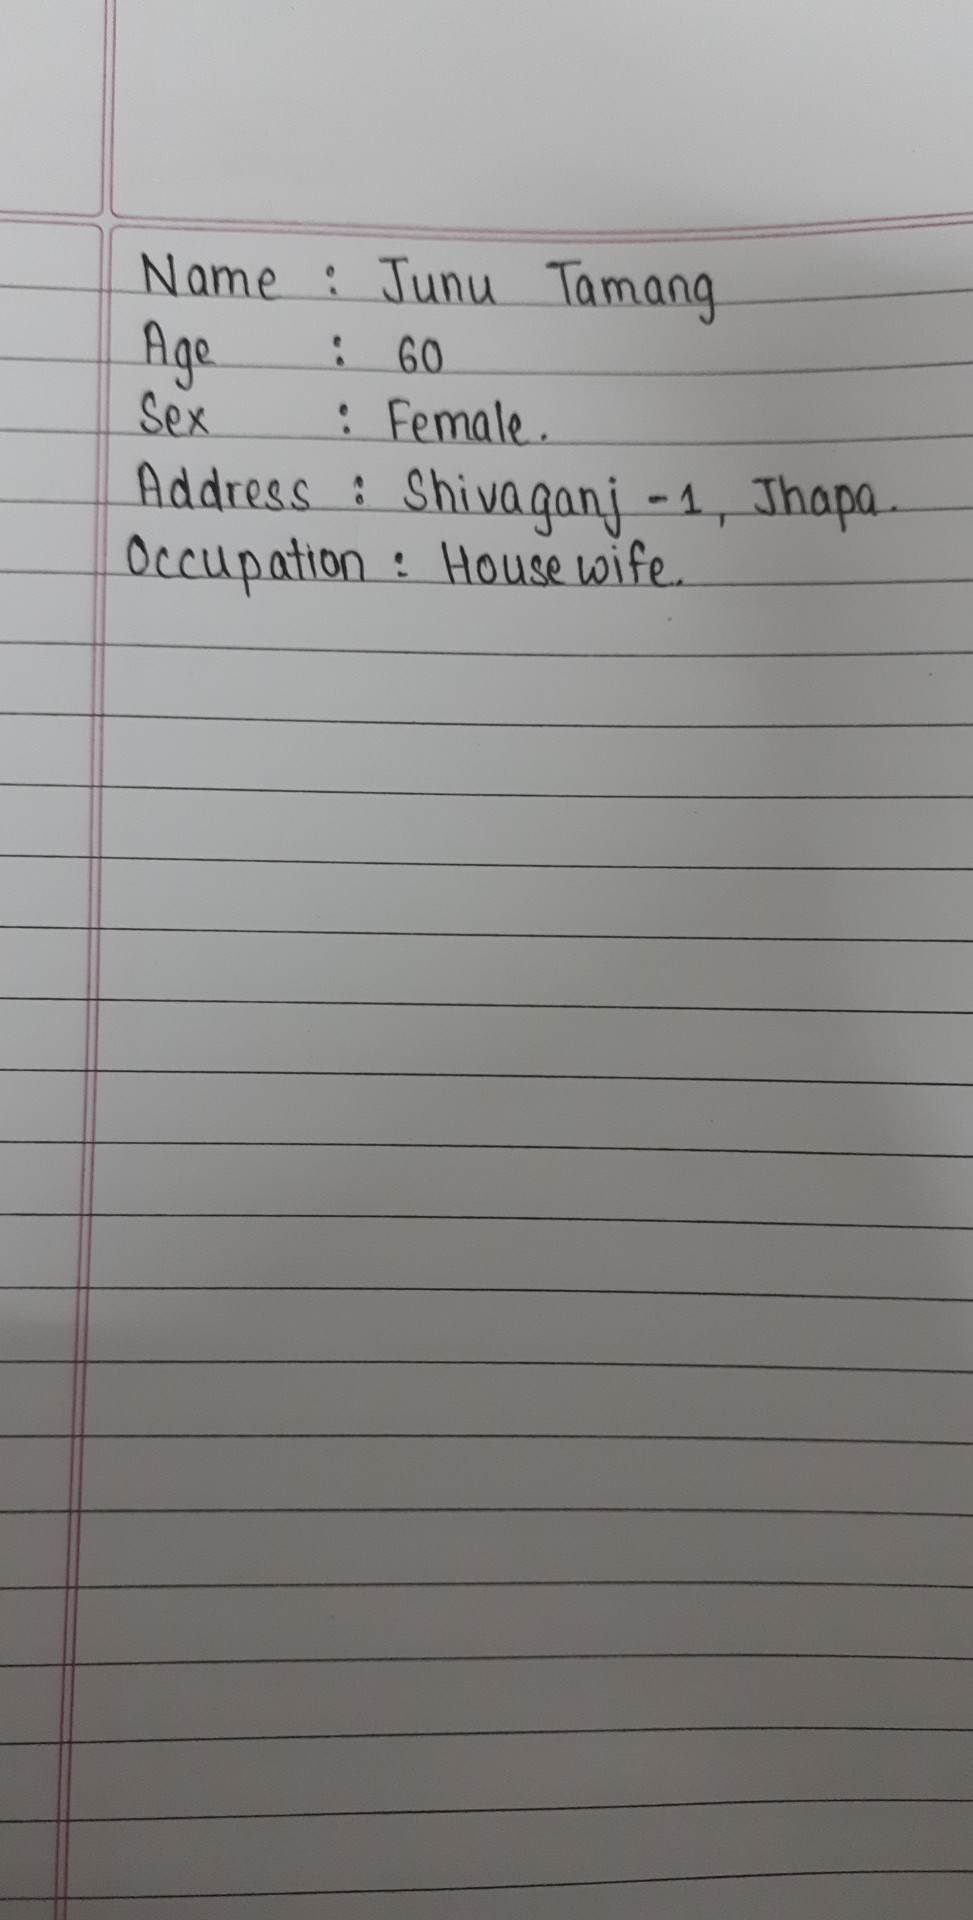 Name : Junu Tamang
Age : 60
Sex : Female.
Address : Shivaganj -1, Jhapa.
Occupation : House wife.